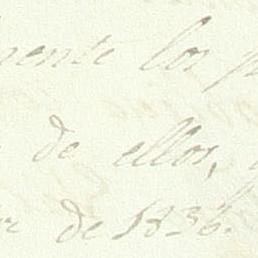 mente los
de ellos,
de 1836.